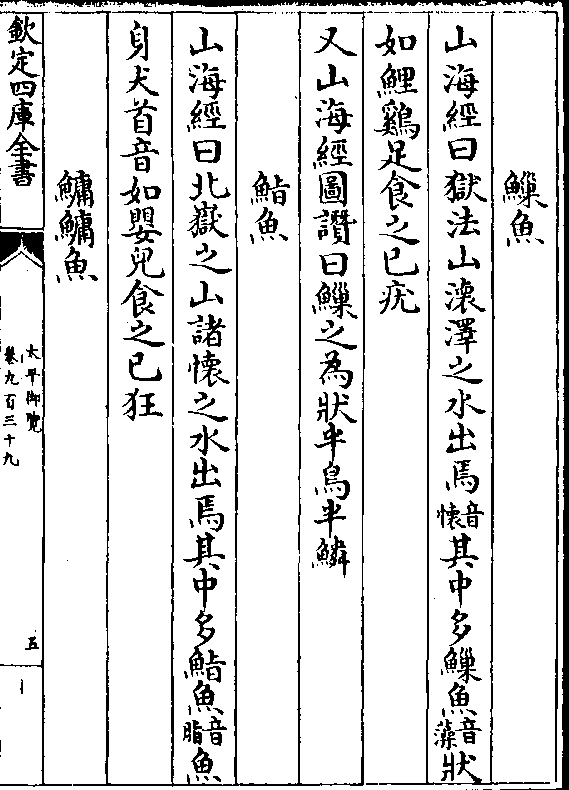 鱳魚
山海經曰獄法山瀤澤之水出焉音懷其中多鱳魚音藻狀
如鯉鷄足食之已疣
又山海經圖讚曰鱳之為狀半鳥半鱗
鮨魚
山海經曰北嶽之山諸懷之水出焉其中多鮨魚音脂魚
身犬首音如嬰兒食之已狂
鱅鱅魚
欽定四庫全書
太平御覽
卷九百三十九
五